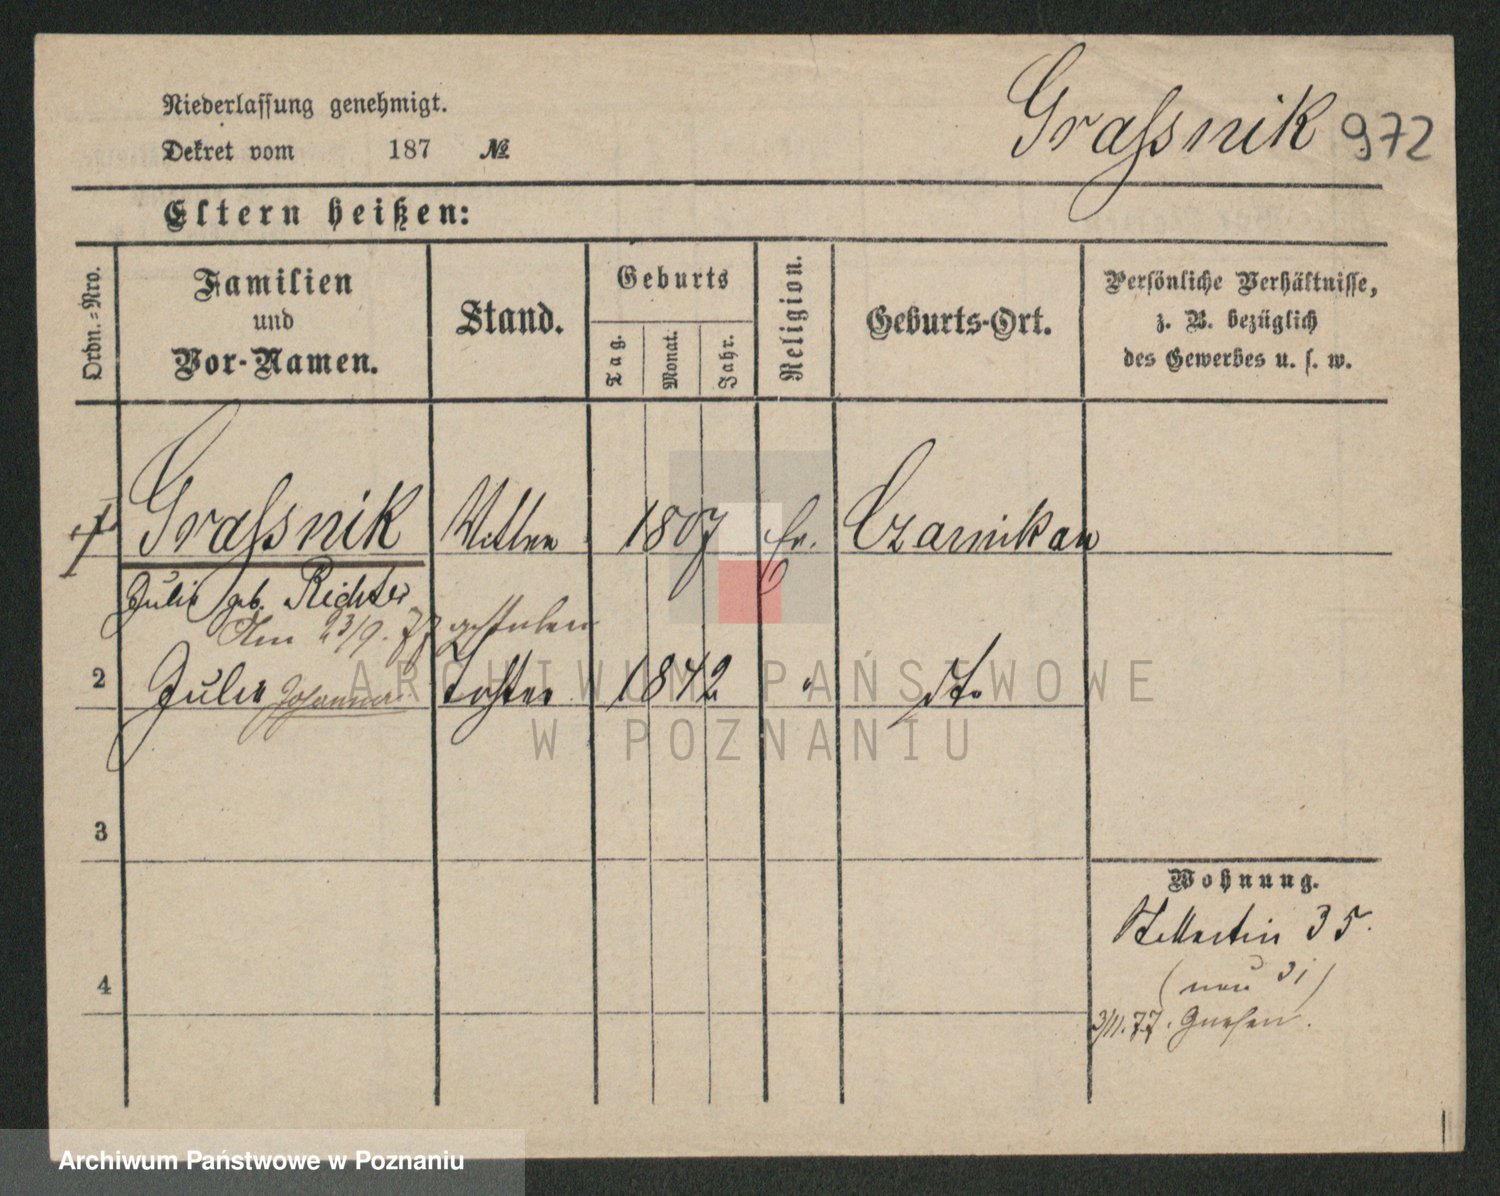 Niederlassung genehmigt.
Graſsnik 972
Dekret vom 187 №
Eltern heißen:
Ordn.=Nro.
Familien
und
Vor-Namen.
Stand.
Geburts
Tag.
Monat.
Jahr.
Religion.
Geburts-Ort.
Persönliche Verhältnisse,
z. B. bezüglich
des Gewerbes u. s. w.
1 Graſsnik Wittwe 1807 Ev. Czarnikau
Julie geb. Richter
Am 23/9. 77 gestorben
2 Julie Johanna Tochter 1842 " dto
ARCHIWUM PAŃSTWOWE
W POZNANIU
3
Wohnung.
St. Martin 35.
4
(neu 31)
3/11.77. Gnesen.
Archiwum Państwowe w Poznaniu